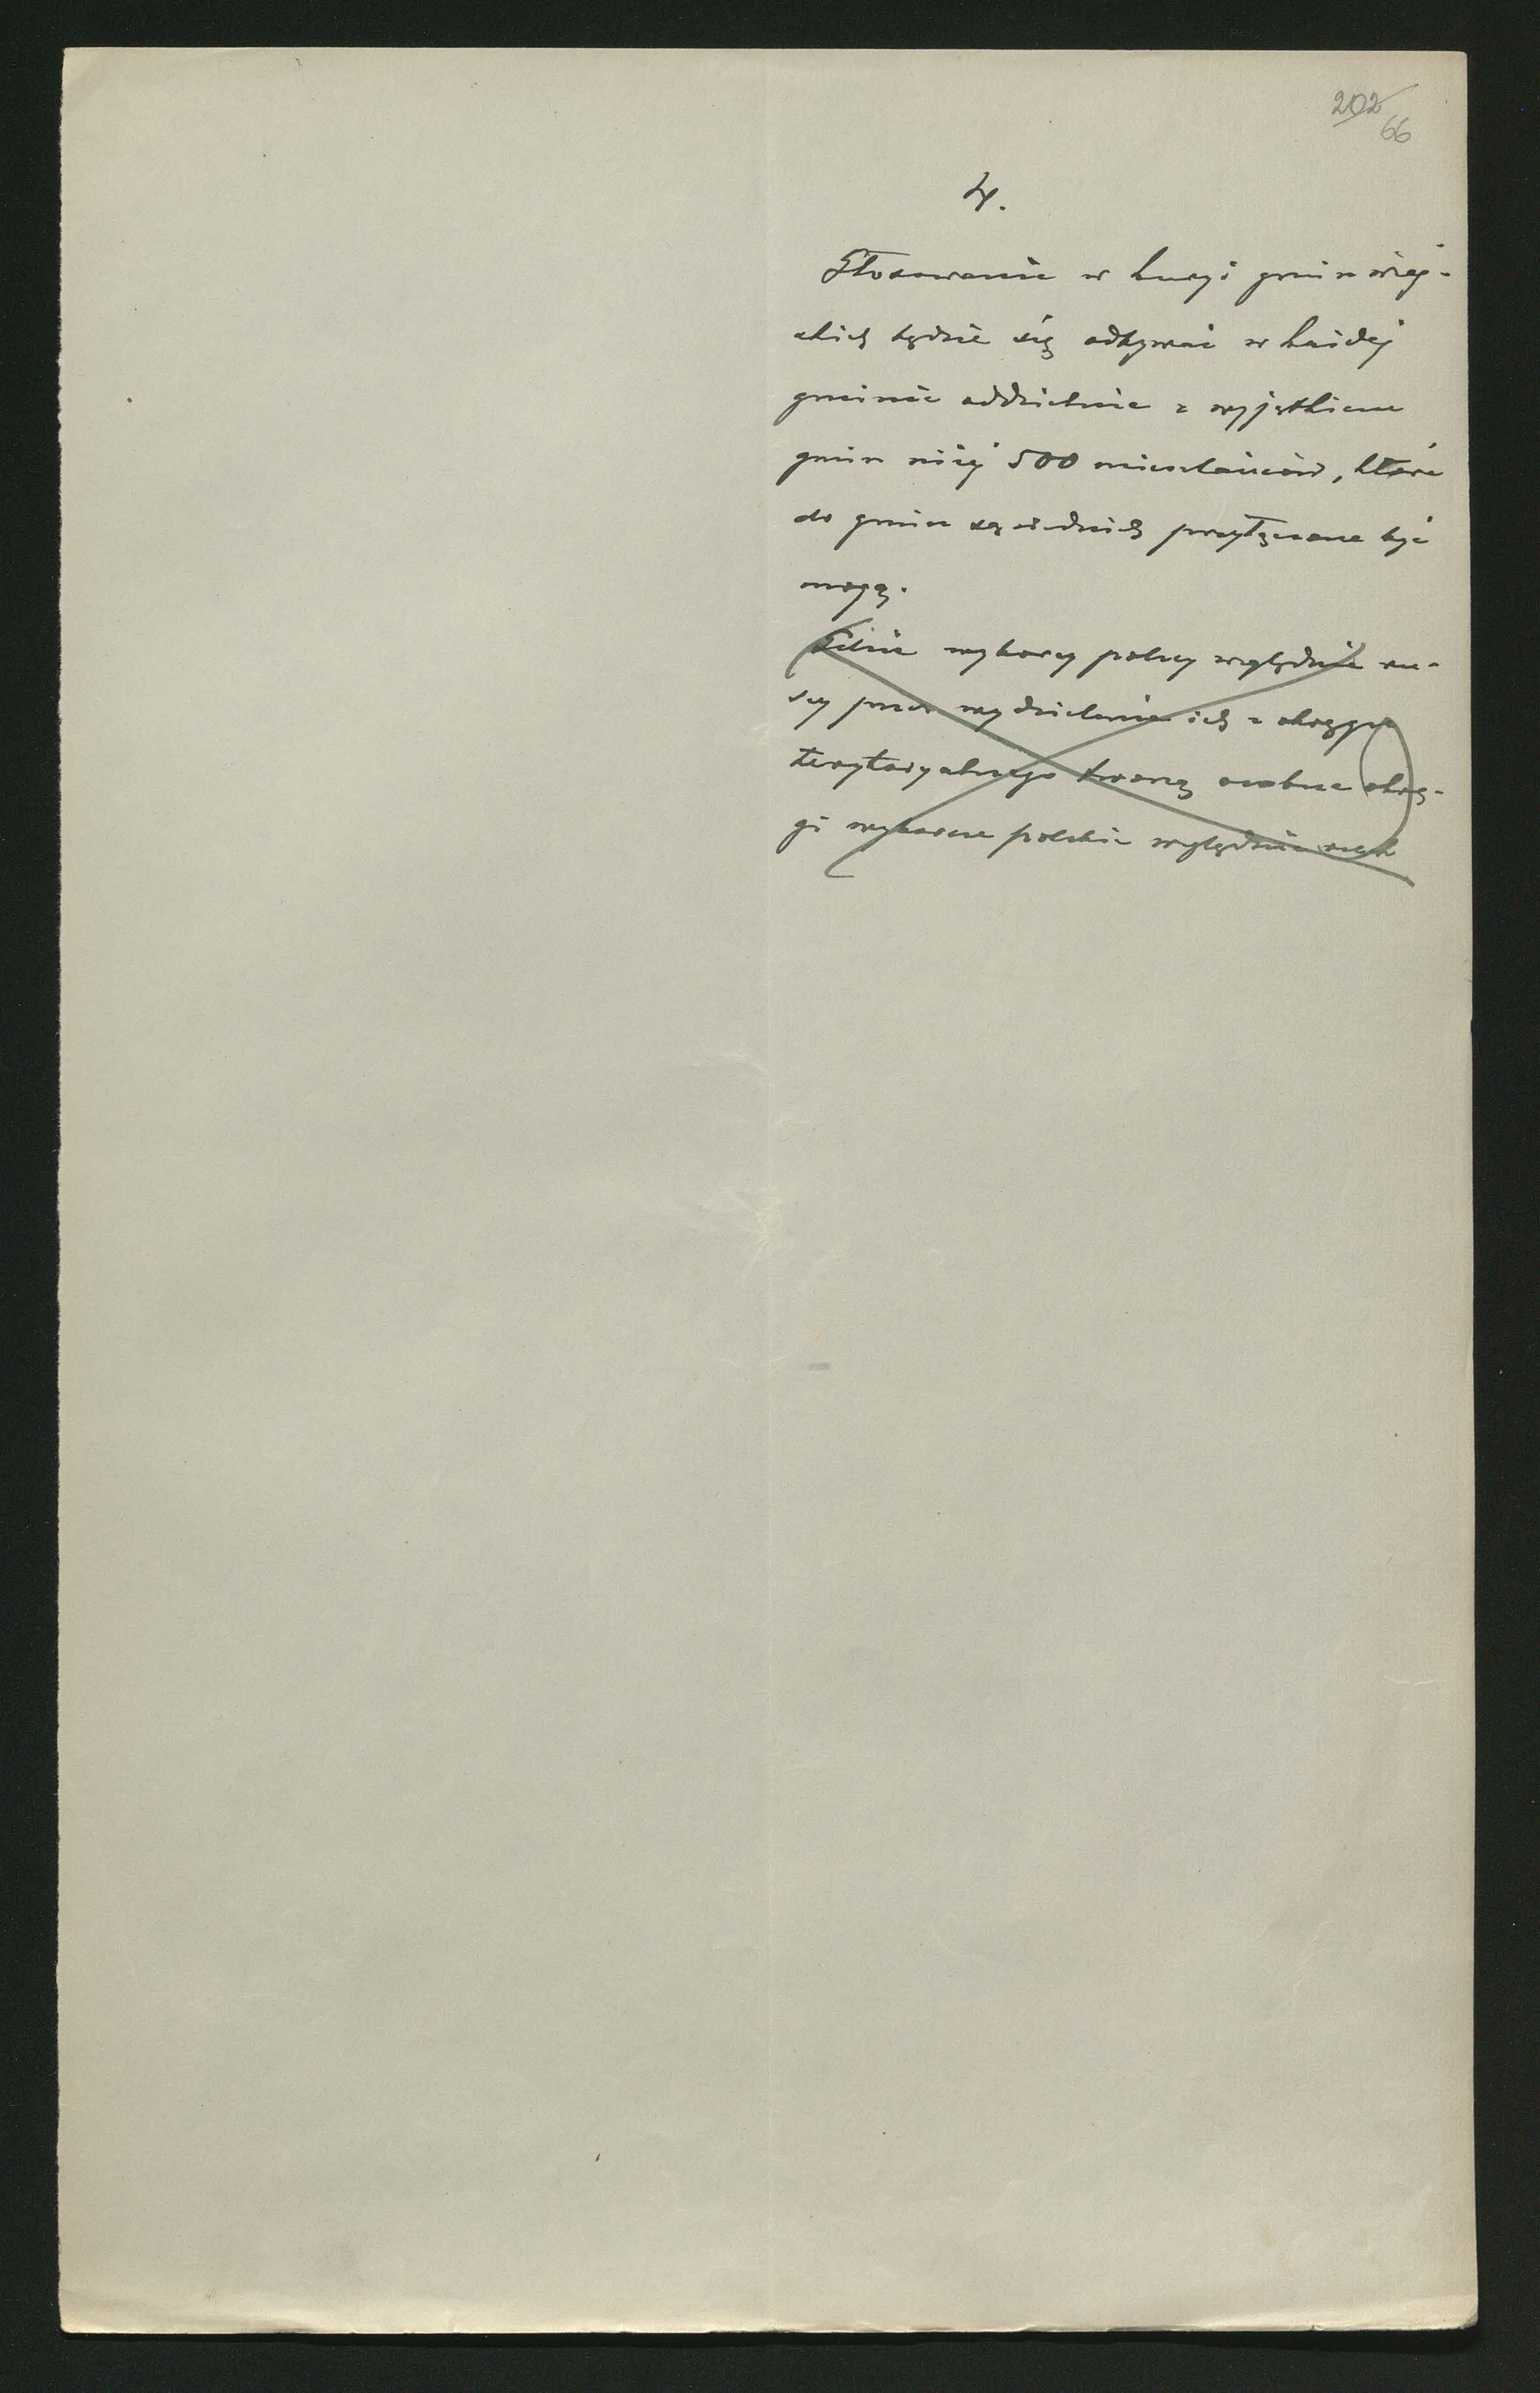 202
66
4.
Głosowanie w kuryi gmin wiej-
skich będzie się odbywać w każdej
gminie oddzielnie z wyjątkiem
gmin niżej 500 mieszkańców, które
do gmin sąsiednich przyłączone być
mogą.
wyborcy polscy względnie ru-
scy przez wydzielenie ich z okręgu
terytoryalnego tworzą osobne okrę-
gi wyborcze polskie względnie rusk